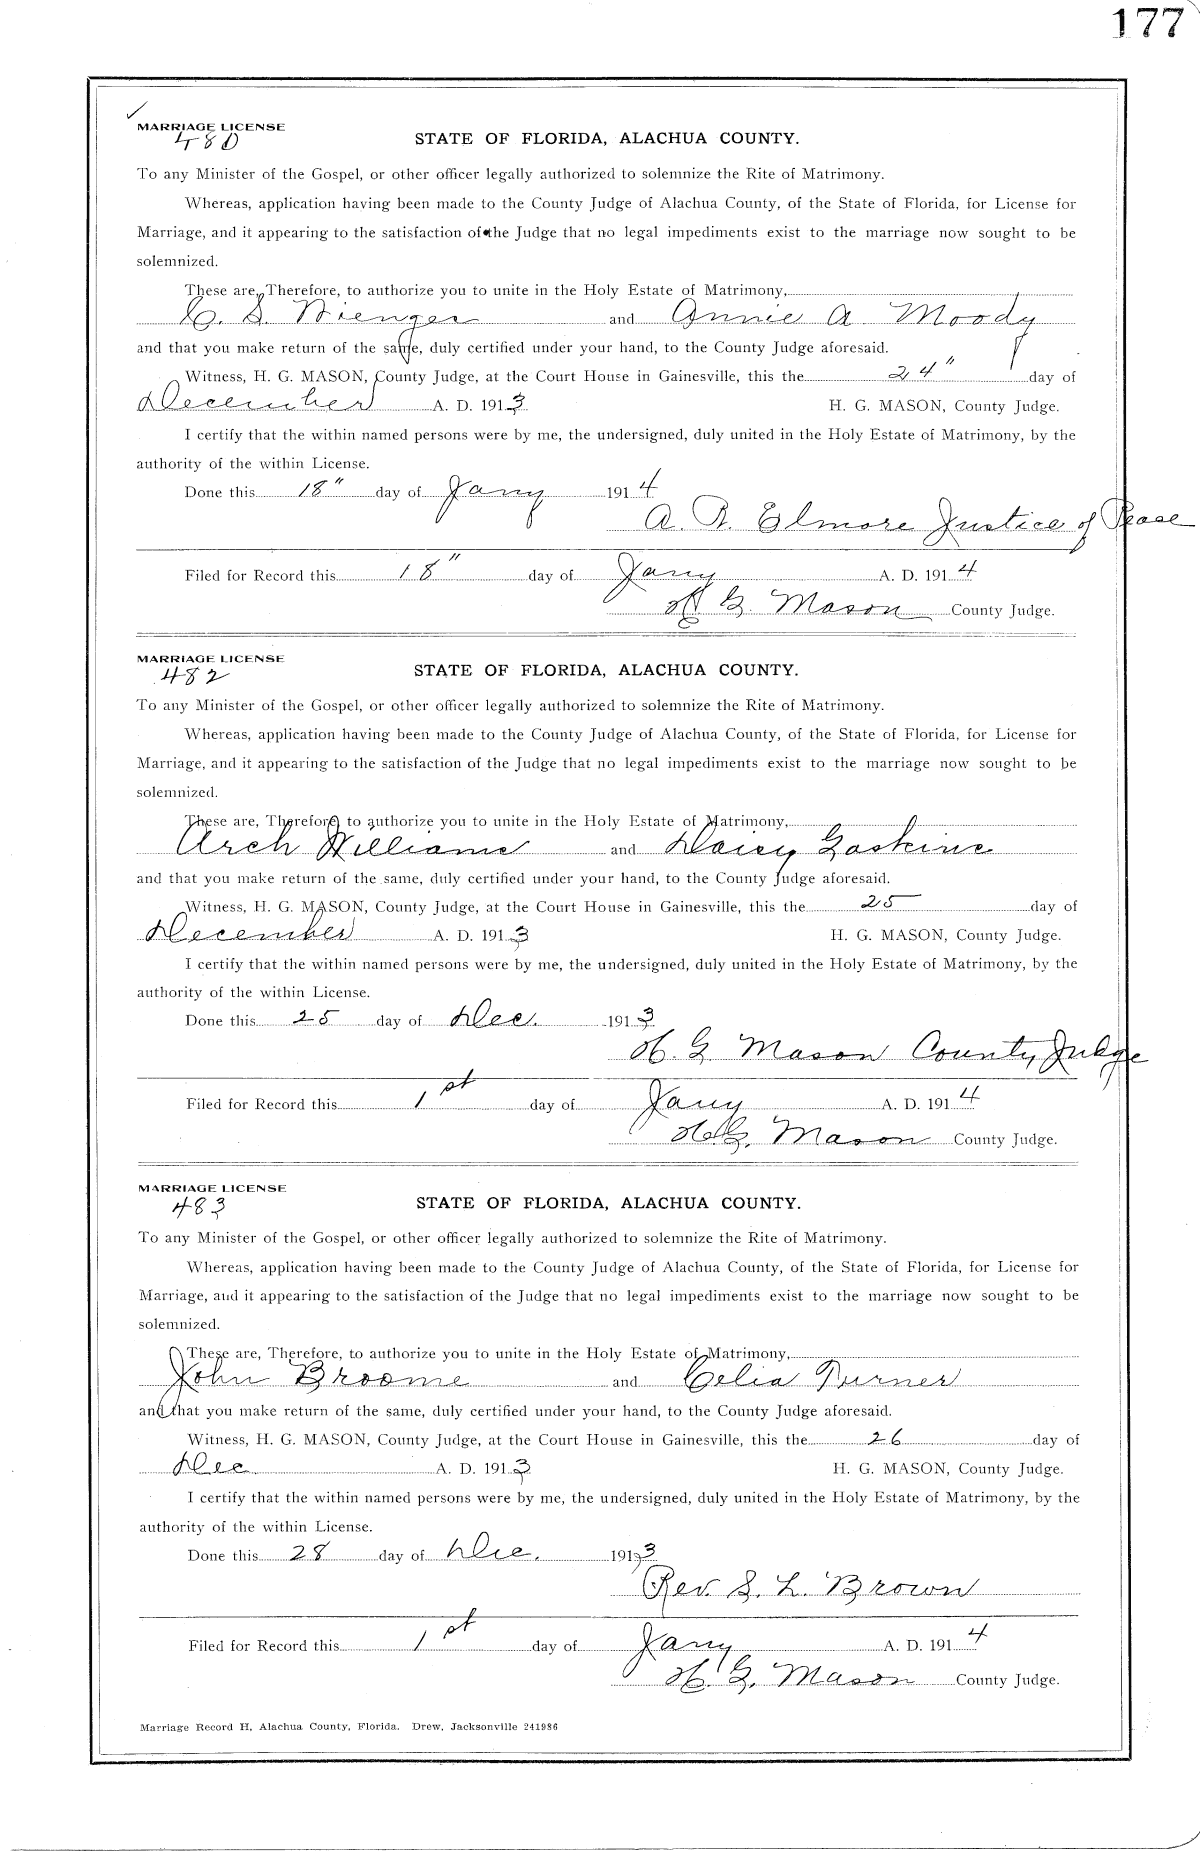 177
✓
MARRIAGE LICENSE
480
STATE OF FLORIDA, ALACHUA COUNTY.
To any Minister of the Gospel, or other officer legally authorized to solemnize the Rite of Matrimony.
Whereas, application having been made to the County Judge of Alachua County, of the State of Florida, for License for
Marriage, and it appearing to the satisfaction of the Judge that no legal impediments exist to the marriage now sought to be
solemnized.
These are, Therefore, to authorize you to unite in the Holy Estate of Matrimony,
C. S. and Annie A Moody
and that you make return of the same, duly certified under your hand, to the County Judge aforesaid.
Witness, H. G. MASON, County Judge, at the Court House in Gainesville, this the 24" day of
December A. D. 1913 H. G. MASON, County Judge.
I certify that the within named persons were by me, the undersigned, duly united in the Holy Estate of Matrimony, by the
authority of the within License.
Done this 18" day of Jany 1914
A. R. Elmore Justice of Pease
Filed for Record this 18" day of Jany A. D. 1914
H G Mason County Judge.
MARRIAGE LICENSE
482
STATE OF FLORIDA, ALACHUA COUNTY.
To any Minister of the Gospel, or other officer legally authorized to solemnize the Rite of Matrimony.
Whereas, application having been made to the County Judge of Alachua County, of the State of Florida, for License for
Marriage, and it appearing to the satisfaction of the Judge that no legal impediments exist to the marriage now sought to be
solemnized.
These are, Therefore, to authorize you to unite in the Holy Estate of Matrimony,
Arch Williams and Daisy Gaskins
and that you make return of the same, duly certified under your hand, to the County Judge aforesaid.
Witness, H. G. MASON, County Judge, at the Court House in Gainesville, this the 25 day of
December A. D. 1913 H. G. MASON, County Judge.
I certify that the within named persons were by me, the undersigned, duly united in the Holy Estate of Matrimony, by the
authority of the within License.
Done this 25 day of Dec. 1913
H. G Mason County Judge
Filed for Record this 1st day of Jany A. D. 1914
H. G. Mason County Judge.
MARRIAGE LICENSE
483
STATE OF FLORIDA, ALACHUA COUNTY.
To any Minister of the Gospel, or other officer legally authorized to solemnize the Rite of Matrimony.
Whereas, application having been made to the County Judge of Alachua County, of the State of Florida, for License for
Marriage, and it appearing to the satisfaction of the Judge that no legal impediments exist to the marriage now sought to be
solemnized.
These are, Therefore, to authorize you to unite in the Holy Estate of Matrimony,
John Broome and Celia Turner
and that you make return of the same, duly certified under your hand, to the County Judge aforesaid.
Witness, H. G. MASON, County Judge, at the Court House in Gainesville, this the 26 day of
Dec A. D. 1913 H. G. MASON, County Judge.
I certify that the within named persons were by me, the undersigned, duly united in the Holy Estate of Matrimony, by the
authority of the within License.
Done this 28 day of Dec. 1913
Rev. S. L. Brown
Filed for Record this 1st day of Jany A. D. 1914
H. G. Mason County Judge.
Marriage Record H, Alachua County, Florida. Drew, Jacksonville 241986